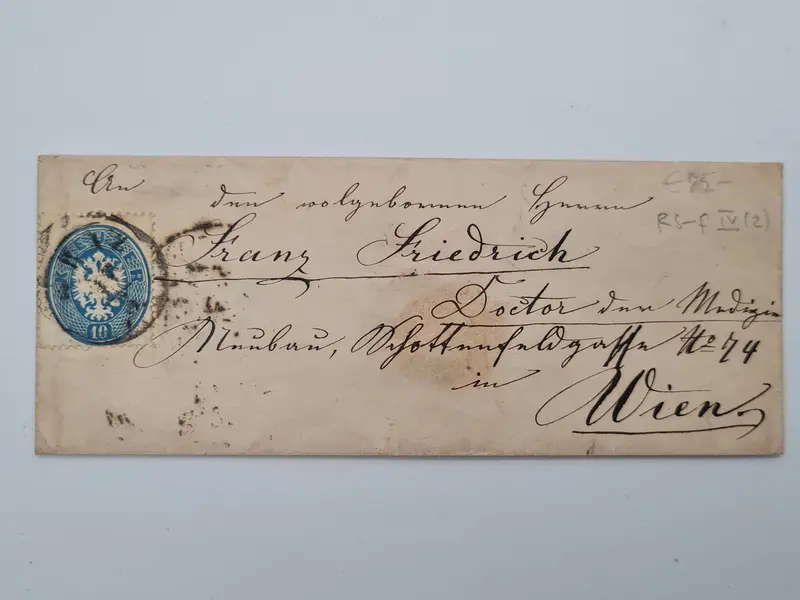 An
den wolgebornen Herrn
Franz Friedrich
Doctor der Medizin
Neubau, Schottenfeldgasse No 74
in
Wien.
10